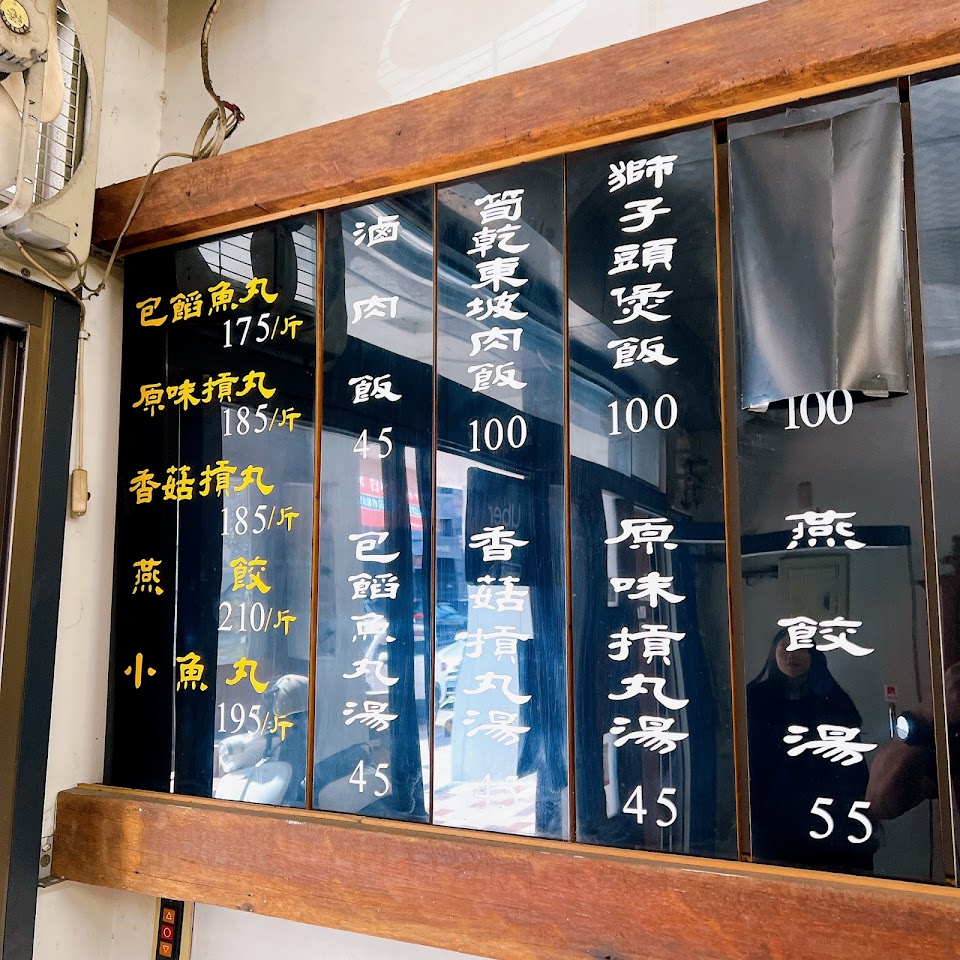 包餡魚丸
175/斤
原味摃丸
185/斤
香菇摃丸
185/斤
燕餃
210/斤
小魚丸
195/斤
滷肉飯
45
包餡魚丸湯
45
筍乾東坡肉飯
100
香菇摃丸湯
45
獅子頭煲飯
100
原味摃丸湯
45
100
燕餃湯
55
Uber